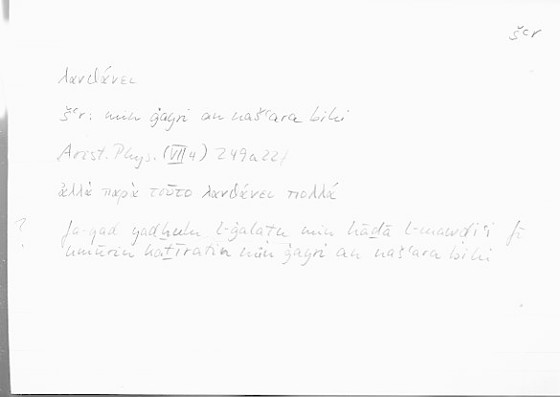 šʿr
λανθάνει
šʿr: min ġayri an našʿara bihi
Arist. Phys. (VII 4) 249a22/
ἀλλὰ παρὰ τοῦτο λανθάνει πολλά
? fa-qad yadḫulu l-ġalaṭu min hāḏā l-mawḍiʿi fī
umūrin kaṯīratin min ġayri an našʿara bihi